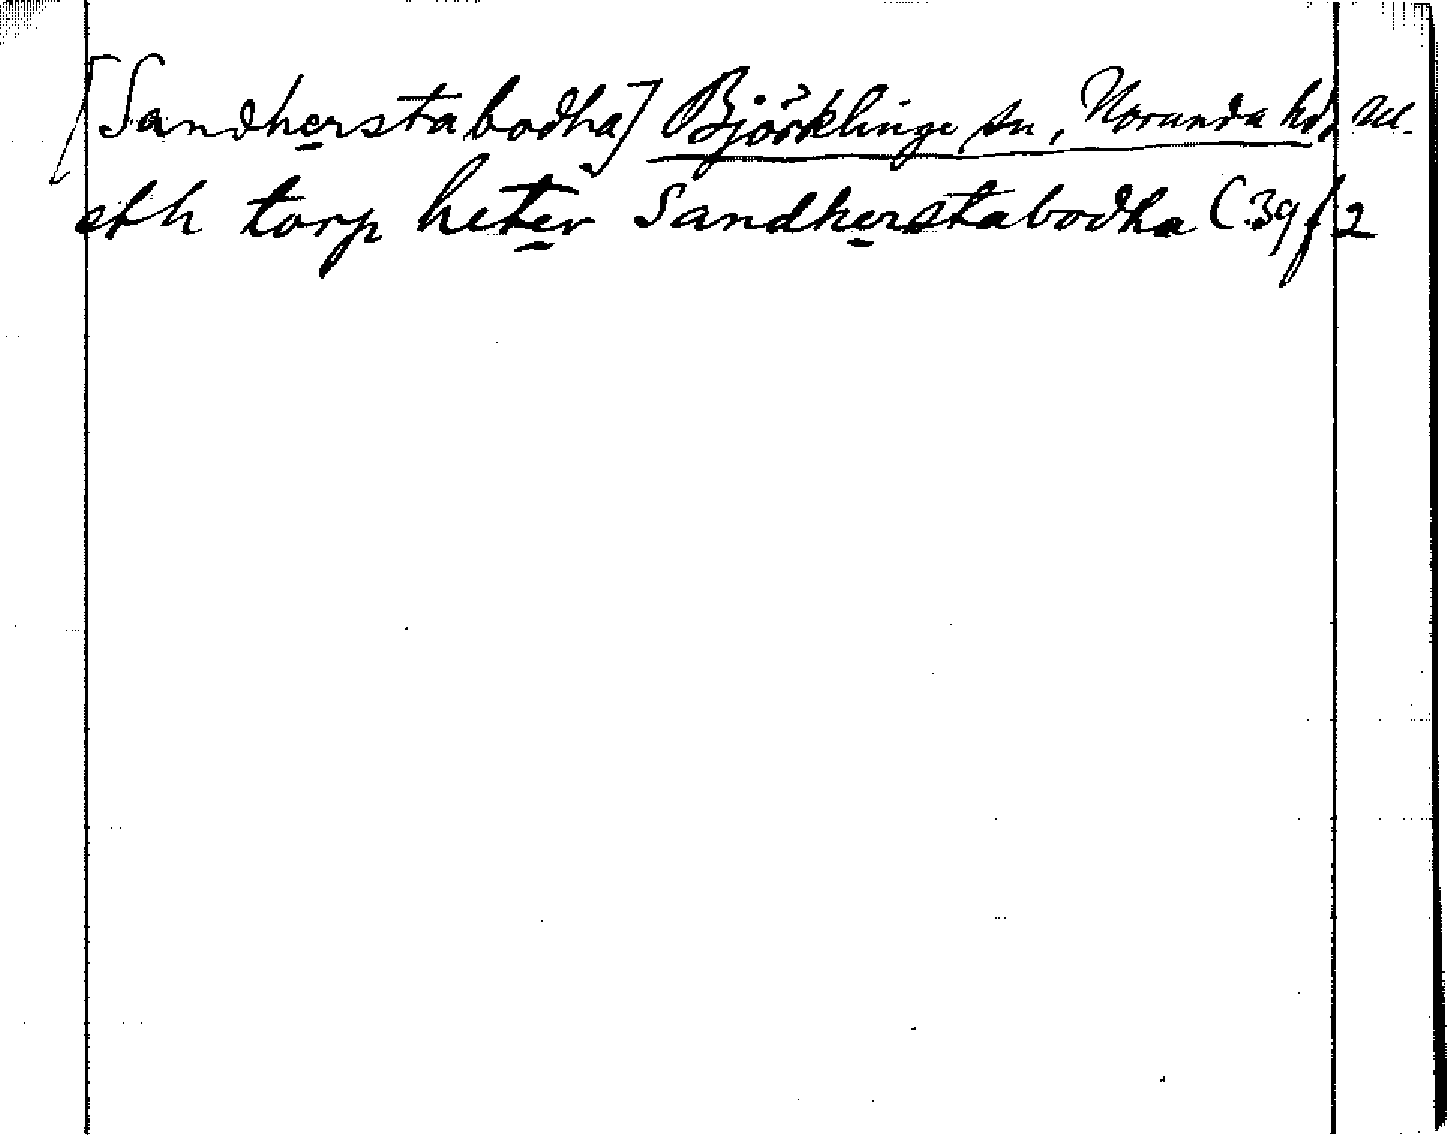 [Sandherstabodha] Björklinge sn, Norunda hd, Ul.
eth torp heter Sandherstabodha C 39 f 2